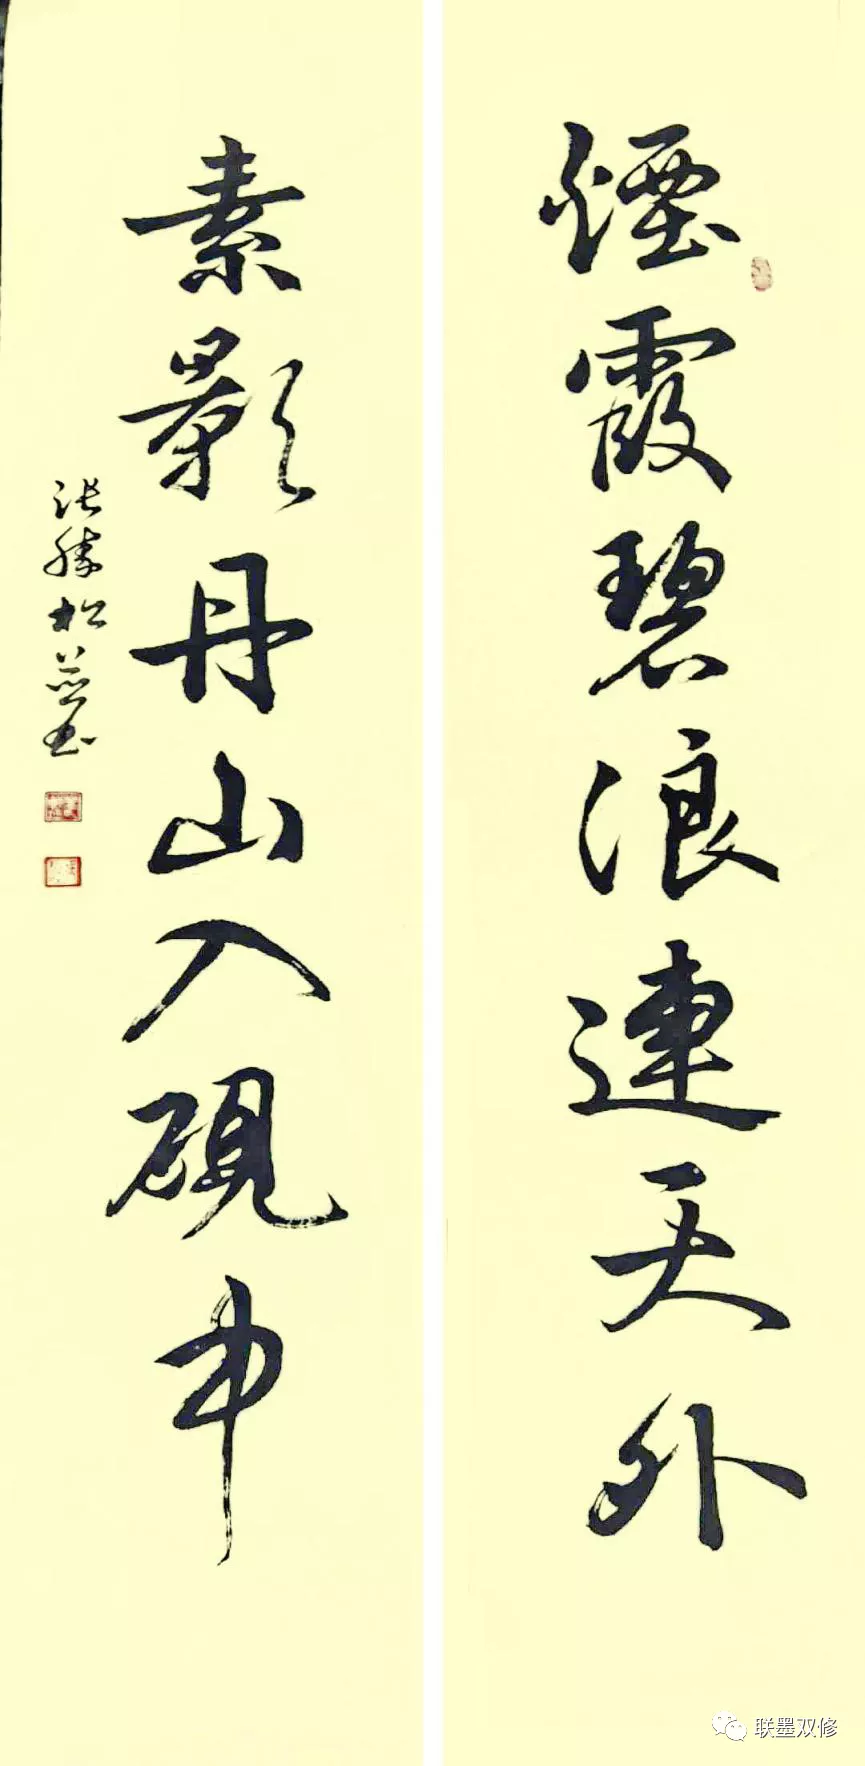 煙霞碧浪連天外
素影丹山入硯中
张胜松并书
联墨双修